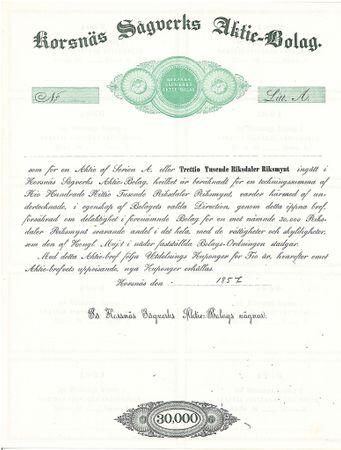 Korsnäs Sågverks Aktie-Bolag.
KORSNÄS
SÅGVERKS
AKTIE-BOLAG
No
Litt. A.
som för en Aktie af Serien A. eller Trettio Tusende Riksdaler Riksmynt ingått i
Korsnäs Sågverks Aktie-Bolag, hvilket är beräknadt för en teckningssumma af
Nio Hundrade Nittio Tusende Riksdaler Riksmynt, varder härmed af un-
dertecknade, i egenskap af Bolagets valda Direction, genom detta öppna bref,
försäkrad om delaktighet i förenämnde Bolag för en mot nämnde 30,000 Riks-
daler Riksmynt svarande andel i det hela, med de rättigheter och skyldigheter,
som den af Kongl. Maj:t i nåder fastställda Bolags-Ordningen stadgar.
Med detta Aktie-bref följa Utdelnings Kuponger för Tio år, hvarefter emot
Aktie-brefvets uppvisande, nya Kuponger erhållas.
Korsnäs den 1857
På Korsnäs Sågverks Aktie-Bolags vägnar:
30,000